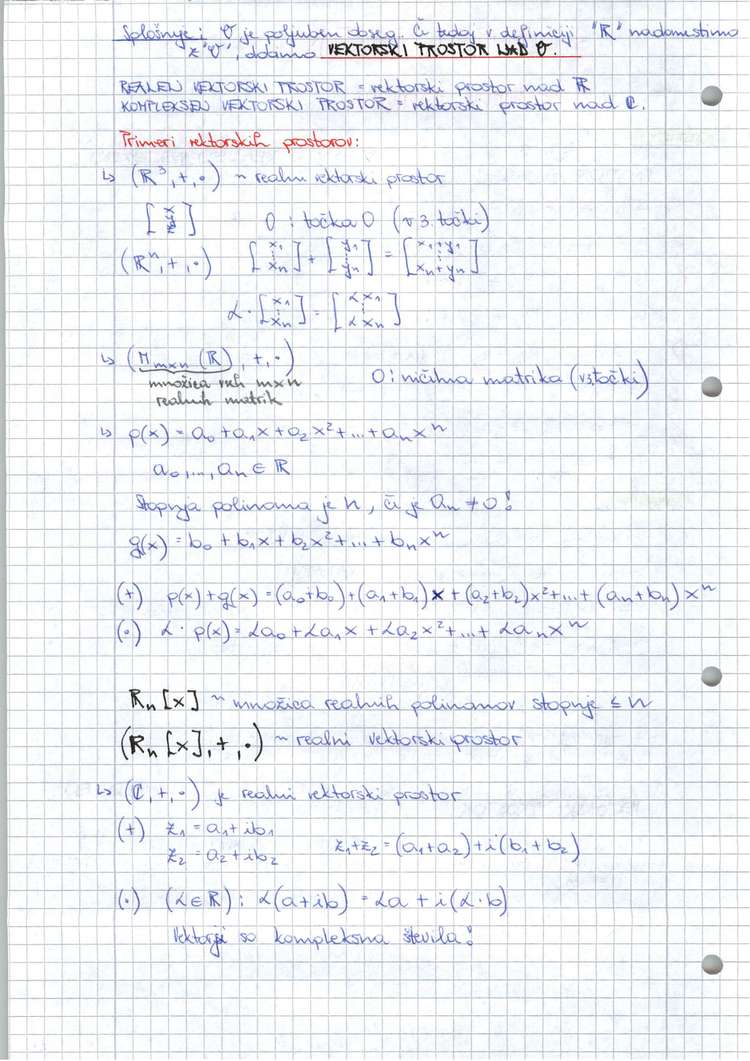 Splošnje: O je poljuben obseg. Če torej v definiciji "R" nadomestimo
z "O", dobimo VEKTORSKI PROSTOR NAD O.
REALEN VEKTORSKI PROSTOR = vektorski prostor nad ℝ
KOMPLEKSEN VEKTORSKI PROSTOR = vektorski prostor nad ℂ.
Primeri vektorskih prostorov:
↳ (ℝ³, +, •) ~ realni vektorski prostor
[x y z] 0 : točka 0 (v 3. točki)
(ℝⁿ, +, •) [x₁ ⋮ xₙ] + [y₁ ⋮ yₙ] = [x₁+y₁ ⋮ xₙ+yₙ]
α • [x₁ ⋮ xₙ] = [αx₁ ⋮ αxₙ]
↳ (Mmxn (ℝ), +, •)
množica vseh mxn 0 : ničelna matrika (v 3. točki)
realnih matrik
↳ p(x) = a₀ + a₁x + a₂x² + ... + aₙxⁿ
a₀, ..., aₙ ∈ ℝ
Stopnja polinoma je n, če je aₙ ≠ 0!
g(x) = b₀ + b₁x + b₂x² + ... + bₙxⁿ
(+) p(x) + g(x) = (a₀+b₀) + (a₁+b₁)x + (a₂+b₂)x² + ... + (aₙ+bₙ)xⁿ
(•) α • p(x) = αa₀ + αa₁x + αa₂x² + ... + αaₙxⁿ
ℝₙ[x] ~ množica realnih polinomov stopnje ≤ n
(ℝₙ[x], +, •) ~ realni vektorski prostor
↳ (ℂ, +, •) je realni vektorski prostor
(+) z₁ = a₁ + ib₁
z₂ = a₂ + ib₂ z₁+z₂ = (a₁+a₂) + i(b₁+b₂)
(•) (α∈ℝ) : α(a+ib) = αa + i(α•b)
Vektorji so kompleksna števila!